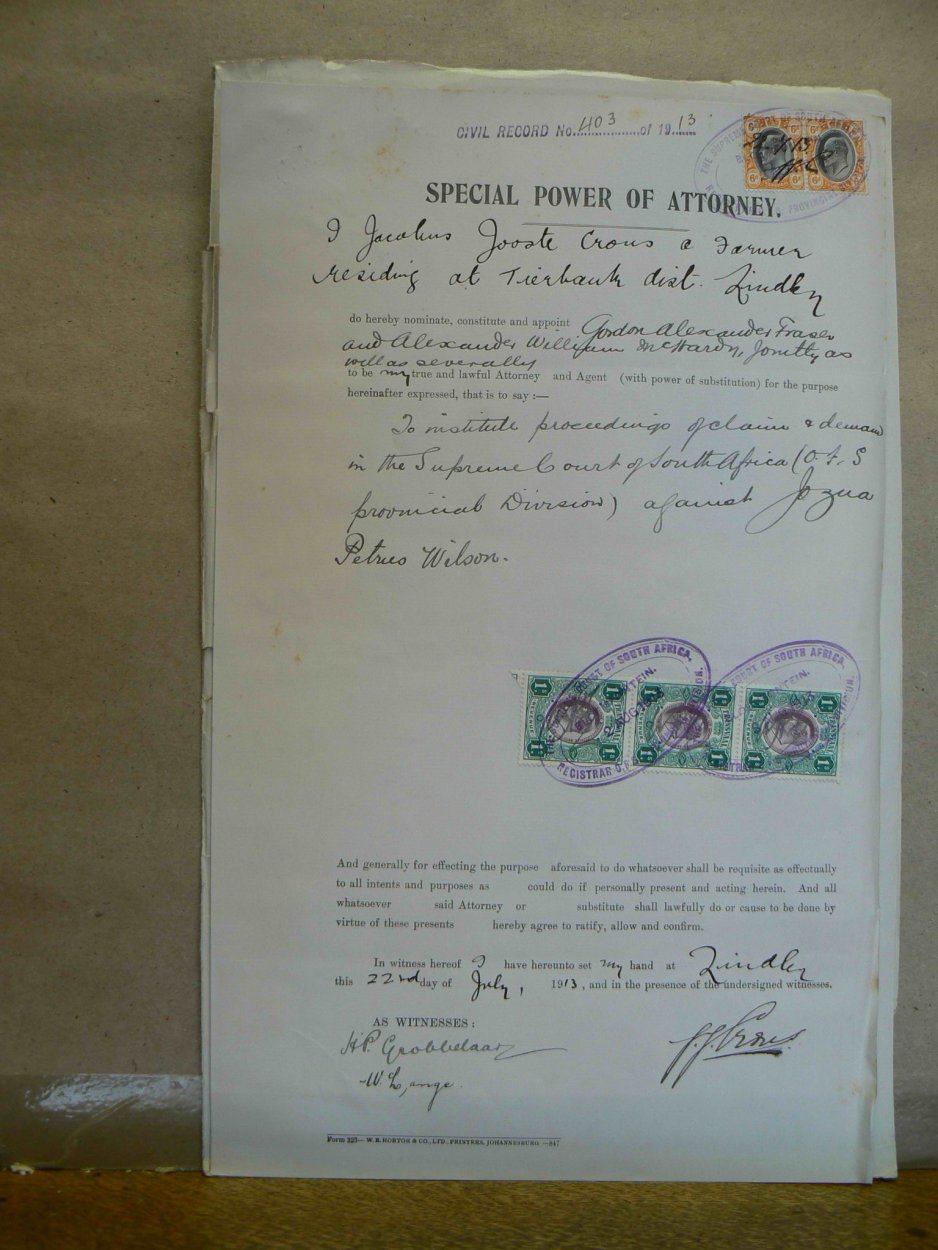 CIVIL RECORD No. 403 of 1913
SPECIAL POWER OF ATTORNEY.
I Jacobus Jooste Crous a Farmer
residing at Tierbank dist. Lindley
do hereby nominate, constitute and appoint Gordon Alexander Fraser
and Alexander William McHardy, Jointly as
well as severally
to be my true and lawful Attorney and Agent (with power of substitution) for the purpose
hereinafter expressed, that is to say :—
To institute proceedings of claim & demand
in the Supreme Court of South Africa (O.F.S
provincial Division) against Jozua
Petrus Wilson.
COURT OF SOUTH AFRICA,
2 AUG 1913
REGISTRAR O.F.
COURT OF SOUTH AFRICA,
And generally for effecting the purpose aforesaid to do whatsoever shall be requisite as effectually
to all intents and purposes as could do if personally present and acting herein. And all
whatsoever said Attorney or substitute shall lawfully do or cause to be done by
virtue of these presents hereby agree to ratify, allow and confirm.
In witness hereof I have hereunto set my hand at Lindley
this 22nd day of July, 1913, and in the presence of the undersigned witnesses.
AS WITNESSES:
H.P. Grobbelaar
J.J. Crous
W. Lange.
Form 323— W. E. HORTOR & CO., LTD., PRINTERS, JOHANNESBURG.—847